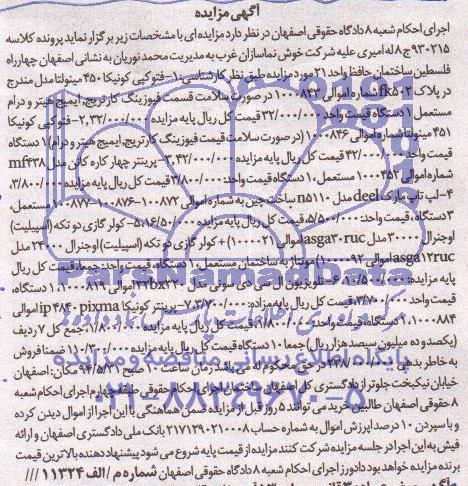 آگهی مزایده
اجرای احکام شعبه ۸ دادگاه حقوقی اصفهان در نظر دارد مزایده ای با مشخصات زیر برگزار نماید پرونده کلاسه
۹۳۰۲۱۵ ج ۸ له امیری علیه شرکت خوش نماسازان غرب به مدیریت محمد نوریان به نشانی اصفهان چهارراه
فلسطین ساختمان حافظ واحد ۲۱ مورد مزایده طبق نظر کارشناسی: ۱- فتوکپی کونیکا ۴۵۰ مینولتا مدل مندرج
در پلاک fk۵۰۲ شماره اموالی ۱۰۰۰۸۴۳ در صورت سلامت قسمت فیوزینگ کارتریج، ایمیج هیتر و درام
مستعمل ۱ دستگاه قیمت واحد ۳۲/۰۰۰/۰۰۰ قیمت کل ریال پایه مزایده ۲-۳۲/۰۰۰/۰۰۰- فتوکپی کونیکا
۴۵۱ مینولتا شماره اموالی ۱۰۰۰۸۴۶ (در صورت سلامت قیمت فیوزینگ کارتریج، ایمیج هیتر و درام) ۱ دستگاه
قیمت واحد ۴۲/۰۰۰/۰۰۰ قیمت کل ریال پایه مزایده ۳-۴۲/۰۰۰/۰۰۰- پرینتر چهار کاره کانن مدل mf۴۳۸
شماره اموالی ۱۰۰۰۴۵۳ مستعمل، ۱ دستگاه قیمت واحد: ۳/۸۰۰/۰۰۰ قیمت کل ریال پایه مزایده ۳/۸۰۰/۰۰۰،
۴- لپ تاپ مارک deel مدل n۵۱۱۰ ساخت چین به شماره اموالی ۱۰۰۰۸۷۲-۱۰۰۰۸۷۶-۱۰۰۰۸۷۷ مستعمل،
۳ دستگاه، قیمت واحد: ۵/۵۰۰/۰۰۰ قیمت کل ریال پایه مزایده ۵-۱۶/۵۰۰/۰۰۰- کولر گازی دو تکه (اسپیلیت)
اوجنرال ۳۰۰۰۰ مدل asga۳۰ruc اموالی (۱۰۰۰۰۲۱) + کولر گازی دو تکه (اسپیلیت) اوجنرال ۲۴۰۰۰ مدل
asga۱۲ruc اموالی (۱۰۰۰۰۹۲) مونتاژ به ساختمان مستعمل، ۱ دستگاه، قیمت واحد: جمعا، قیمت کل ریال
قیمت واحد ۳/۷۰۰/۰۰۰، قیمت کل ریال پایه مزاده: ۷-۳/۷۰۰/۰۰۰- پرینتر کونیکا ip۴۸۴۰ pixma اموالی
۱۰۰۰۸۸۴، ۱ دستگاه قیمت واحد: ۱/۸۰۰/۰۰۰ قیمت کل ریال پایه مزایده: ۱/۸۰۰/۰۰۰، جمع کل ۷ ردیف
(یکصد و ده میلیون سیصد هزار ریال) جمعا ۱۰ دستگاه قیمت کل ریال پایه مزایده ۱۱۰/۳۰۰/۰۰۰ ضمنا فروش
خیابان نیکبخت جلوتر از دادگستری کل اصفهان ساختمان اجرای احکام حقوقی طبقه چهارم اجرای احکام شعبه
۸ حقوقی اصفهان طالبین خرید می توانند ۵ روز قبل از مزایده ضمن هماهنگی با این اجرا از اموال دیدن کرده
و با سپردن ۱۰ درصد ارزش اموال به شماره حساب ۲۱۷۱۲۹۰۲۱۰۰۰۸ بانک ملی دادگستری اصفهان و ارائه
فیش به این اجرا در جلسه مزایده شرکت کنند مزایده از قیمت پایه شروع می شود پیشنهاد دهنده بالاترین قیمت
برنده مزایده خواهد بود دادورز اجرای احکام شعبه ۸ دادگاه حقوقی اصفهان شماره م/الف ۱۱۳۲۴ ///
ParsNamadData
پایگاه اطلاع رسانی مناقصه و مزایده
۰۲۱-۸۸۳۴۹۶۷۰-۵